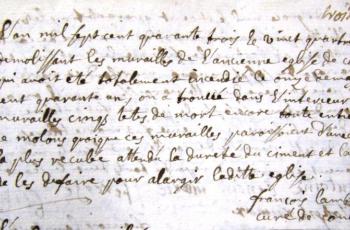 L'an mil sept cent quarante trois le vingt quatr
demolissant les murailles de l'ancienne eglise de co
qui avoit été totalement incendié le onze de may
cent quarante un, on a trouvé dans l'interieur
murailles cinq tetes de mort encore toute enti
a molons quoique ces murailles paroissoient d'une
la plus reculée attendu la dureté du ciment et la
de les defaire pour alargir ladite eglise.
françois
curé de